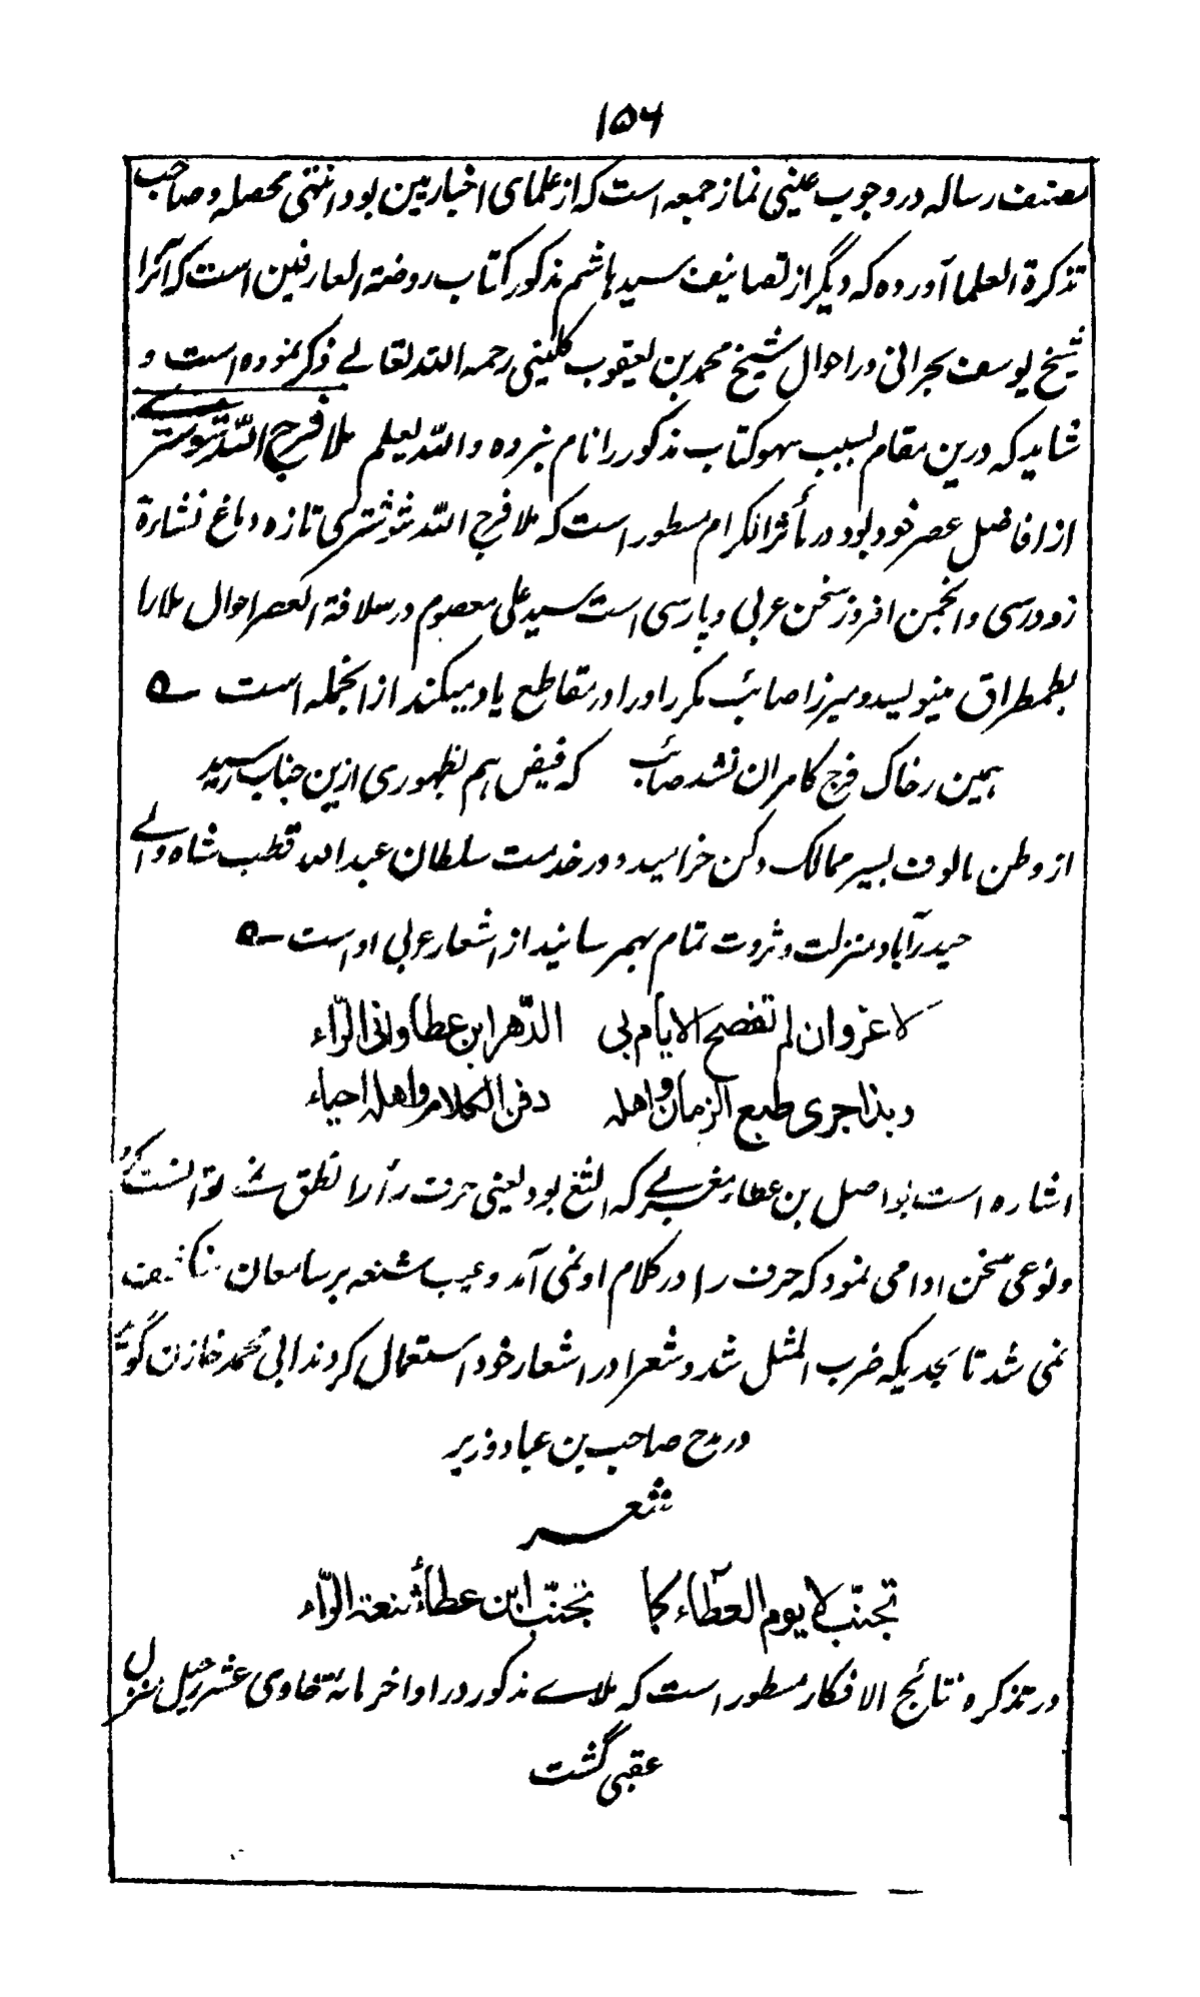 ۱۵۶
مصنف رساله در وجوب عینی نماز جمعه است که از علمای اخباریین بود انتهی محصله و صاحب
تذکرة العلما آورده که دیگر از تصانیف سید هاشم مذکور کتاب روضة العارفین است که آنرا
شیخ یوسف بحرانی در احوال شیخ محمد بن یعقوب کلینی رحمه الله تعالے ذکر نموده است و
شاید که درین مقام بسبب سهو کتاب مذکور را نام نبرده والله یعلم ملا فرج الله شوشترے
از افاضل عصر خود بود در مآثر الکرام مسطور است که ملا فرج الله شوشتری تازه دماغ نشاءة
زودرسی و انجمن افروز سخن عربی و پارسی است سید علی معصوم در سلافة العصر احوال ملا را
بطمطراق مینویسد و میرزا صائب مکرر او را در مقاطع یاد میکند از انجمله است ـه
همین ز خاک فرج کامران نشد صائب که فیض هم بظهوری ازین جناب رسید
از وطن مالوف بسیر ممالک دکن خرامید و در خدمت سلطان عبدالله قطب شاه والے
حیدرآباد منزلت و ثروت تمام بهمرسانید از اشعار عربی اوست ـه
لا غرو ان لم تفصح الایام بی الدّهر ابن عطا وانی الرّاء
وبذا جری طبع الزمان واهله دفن الکلام واهله احیاء
اشاره است بواصل بن عطاء مغربے که الثغ بود یعنی حرف رأ را نطق نمے توانست کرد
و نوعی سخن ادا می نمود که حرف را در کلام او نمی آمد و عیب شنعه بر سامعان منکشف
نمی شد تا بحدیکه ضرب المثل شد و شعرا در اشعار خود استعمال کردند ابی محمد خازن گوید
در مدح صاحب بن عباد وزیر
شعـــر
تجنّب لا یوم العطاء کما تجنّب ابن عطاء شنعة الرّاء
در تذکره نتائج الافکار مسطور است که ملاے مذکور در اواخر مائة حاوی عشر رحیل منزل
عقبی گشت